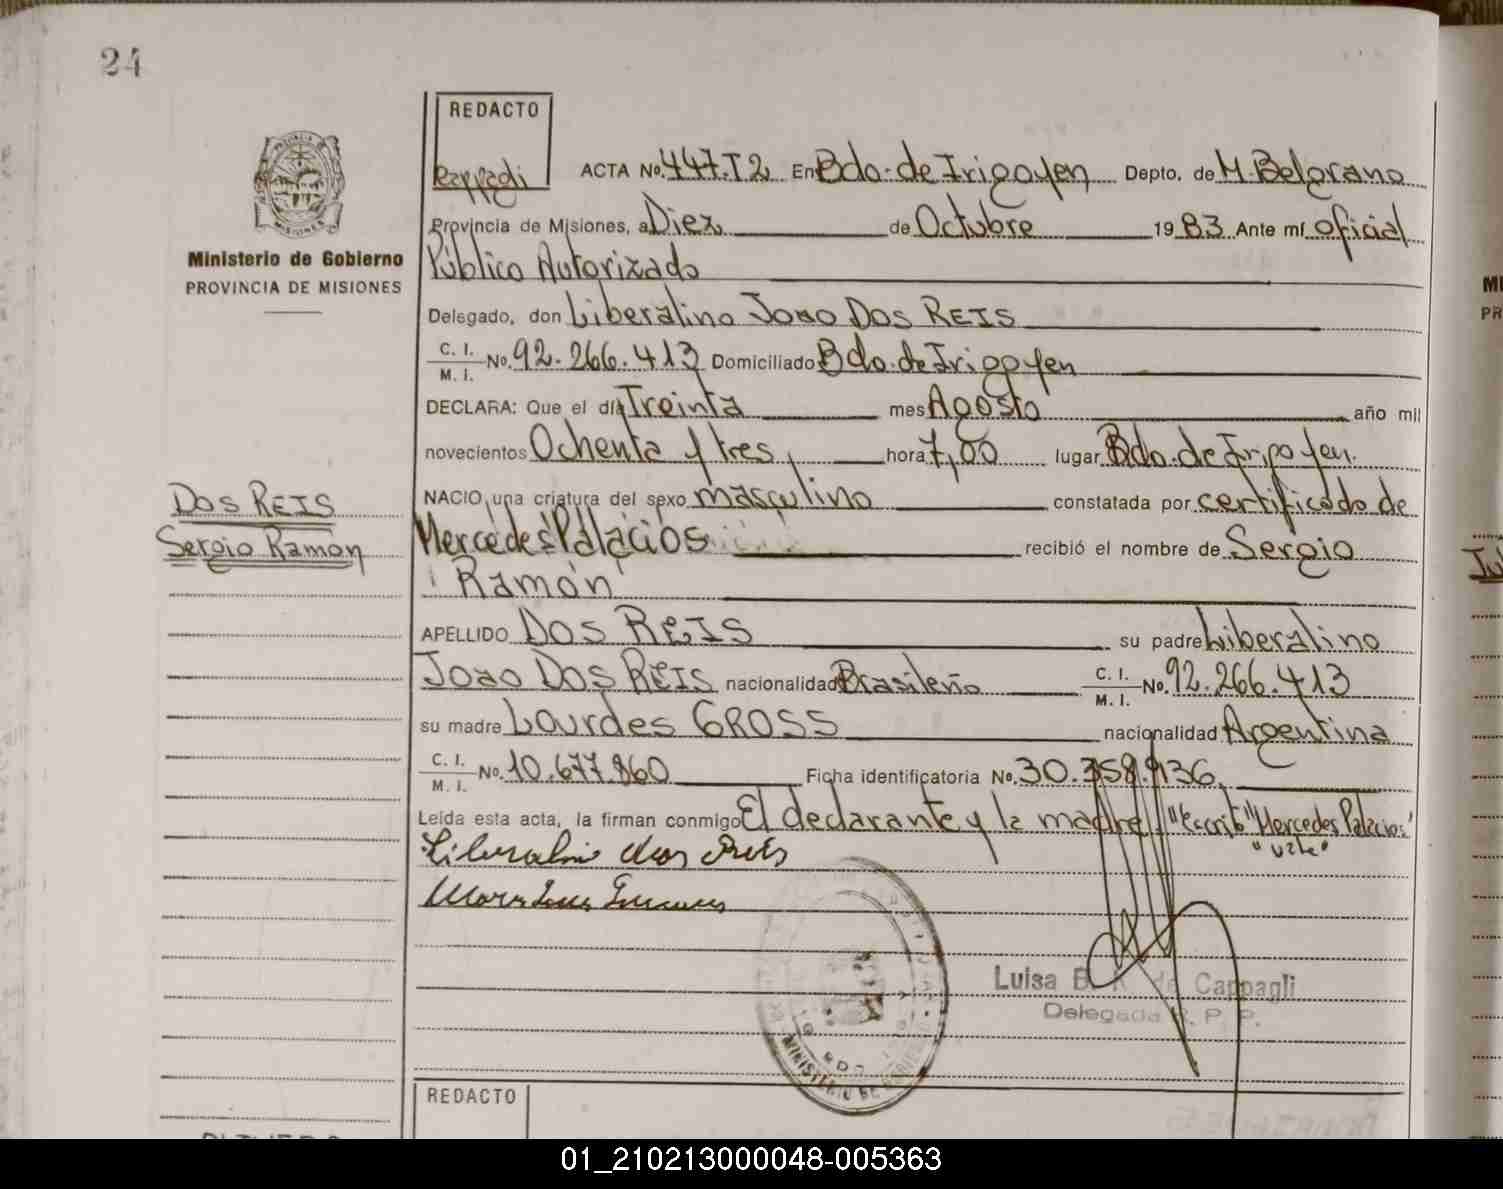 24
REDACTO
ACTA No. 447.T2 En Bdo. de Irigoyen Depto. de M. Belgrano
Provincia de Misiones, a Diez de Octubre 1983 Ante mí oficial
Ministerio de Gobierno
PROVINCIA DE MISIONES
Público Autorizado
Delegado, don Liberalino Joao DOS REIS
C. I.
M. I. No. 92.266.413 Domiciliado Bdo. de Irigoyen
DECLARA: Que el día Treinta mes Agosto año mil
novecientos Ochenta y tres, hora 7,00 lugar Bdo. de Irigoyen.
NACIO una criatura del sexo masculino constatada por certificado de
Mercedes Palacios recibió el nombre de Sergio
Ramón
DOS REIS
Sergio Ramon
APELLIDO DOS REIS su padre Liberalino
Joao DOS REIS nacionalidad Brasileño C. I.
M. I. No. 92.266.413
su madre Lourdes GROSS nacionalidad Argentina
C. I.
M. I. No. 10.677.860 Ficha identificatoria No. 30.358.936,
Leída esta acta, la firman conmigo El declarante y la madre "escrito" Mercedes Palacios"
"vale"
Liberalino dos Reis
Luisa B. de Cappagli
Delegada R. P. P.
MINISTERIO DE
REDACTO
01_210213000048-005363